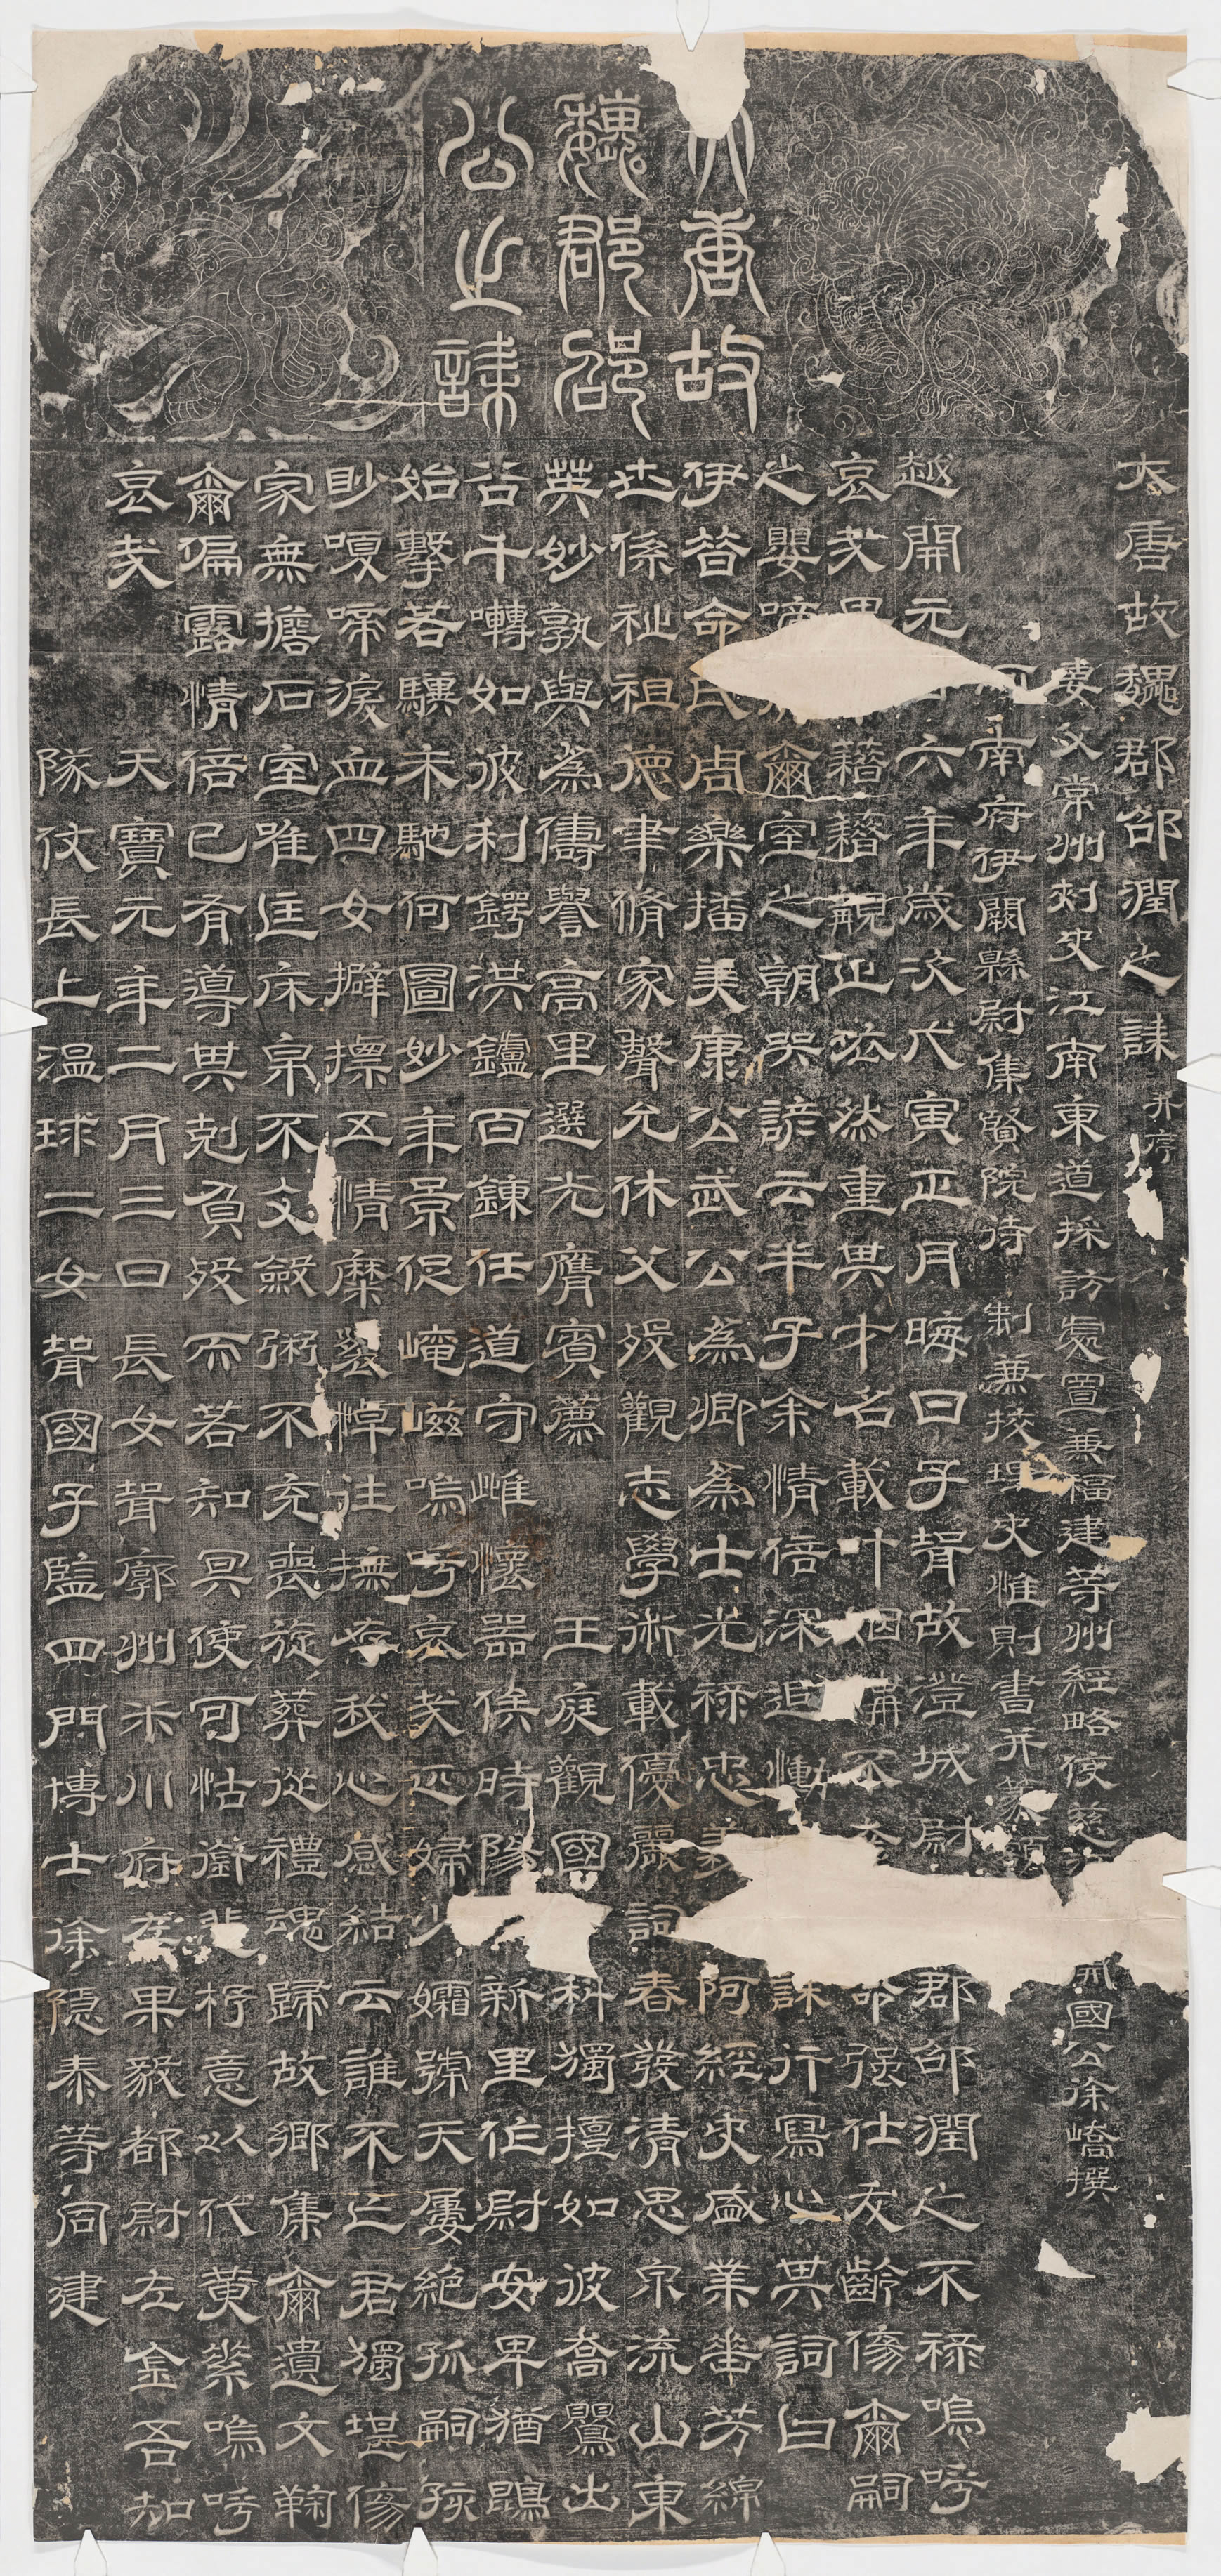 大唐故
魏郡邵
公之誄
大唐故魏郡邵潤之誄并序
妻父常州刺史江南東道採訪處置兼福建等州經略使慈國公徐嶠撰
河南府伊闕縣尉集賢院待制兼校理史惟則書并篆額
越開元六年歲次戊寅正月晦日子壻故澄城尉郡邵潤之不祿嗚呼
哀哉思籍籍觀正淡然重其才名載叶姻不命強仕友齡傷爾嗣
之嬰啼爾室之朝哭諺云半子余情倍深追慟誄行寫心其詞曰
伊昔命氏周樂播美康公武公為卿為士光祿忠義阿經史盛業舉芳綿
世係祉祖德聿脩家聲允休父歿觀志學術載優麗詞春發清思泉流山東
英妙孰與為儔譽高里選光膺賓薦王庭觀國科獨擅如彼喬鸎出
谷千囀如彼利鍔洪鑪百鍊任道守雌懷器俟時新里作尉安卑猶鵾
始擊若驥未馳何圖妙年景促崦嵫嗚乎哀哉匹婦少孀號天屢絕孤嗣孩
眇嗄啼淚血四女擗摽五情糜裂悼往撫存我心感結云誰不亡君獨堪傷
家無擔石室唯匡床帛不文斂粥不充喪旋葬從禮魂歸故鄉集爾遺文鞠
爾偏露情倍己有導其剋負歿而若知冥使可怙銜悲杼意以代黃紫嗚呼
哀哉 天寶元年二月三日長女聟廓州禾川府左果毅都尉左金吾知
隊仗長上溫球二女聟國子監四門博士徐隱泰等同建